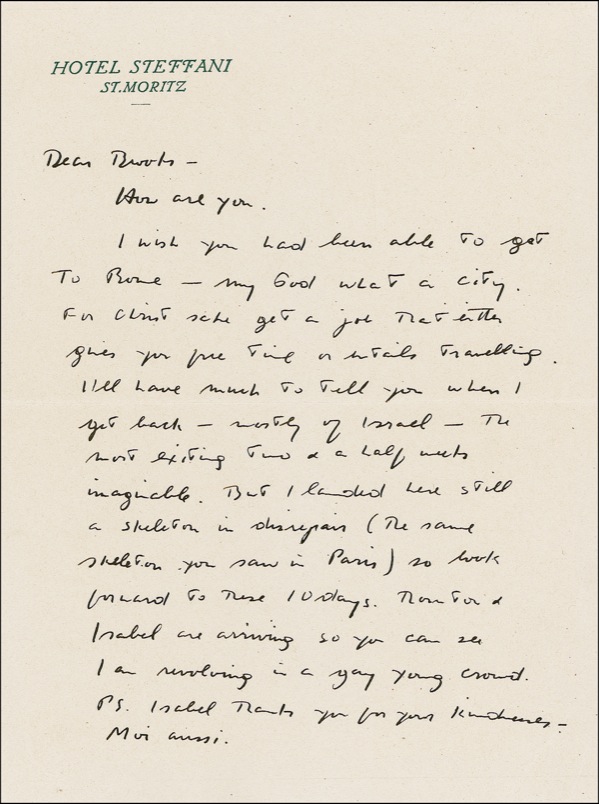 HOTEL STEFFANI
ST. MORITZ
Dear Brooks –
How are you.
I wish you had been able to get
To Rome – my God what a city.
For Christ sake get a job that either
gives you free time or entails travelling.
I'll have much to tell you when I
get back – mostly of Israel – The
most exiting two & a half weeks
imaginable. But I landed here still
a skeleton in disrepair (The same
skeleton you saw in Paris) so look
forward to These 10 days. &
Isabel are arriving so you can see
I am revolving in a gay young crowd.
PS. Isabel Thanks you for your kindnesses –
Moi aussi.